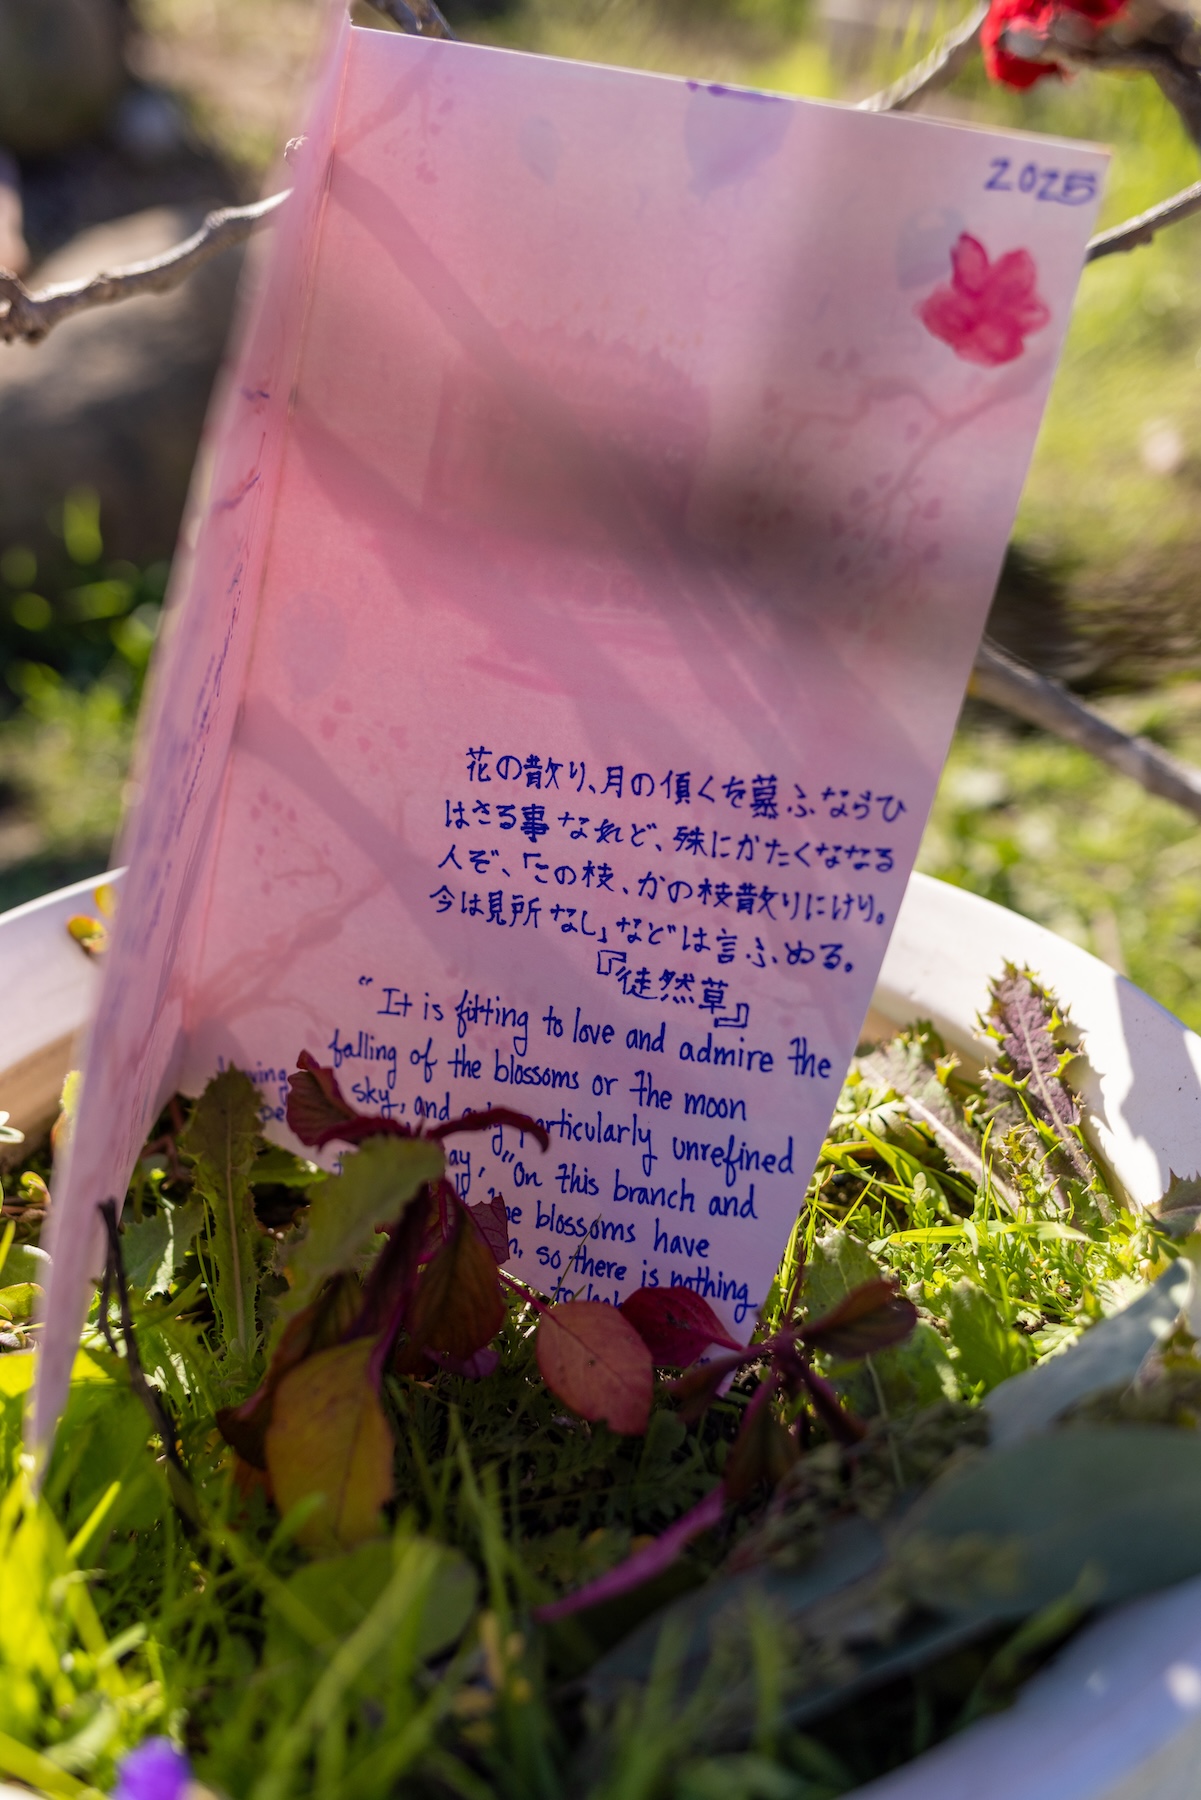 2025
花の散り、月の傾くを慕ふならひ
はさる事なれど、殊にかたくななる
人ぞ、「この枝、かの枝散りにけり。
今は見所なし」などは言ふめる。
『徒然草』
"It is fitting to love and admire the
falling of the blossoms or the moon
sky, and only particularly unrefined
"On this branch and
blossoms have
so there is nothing
to